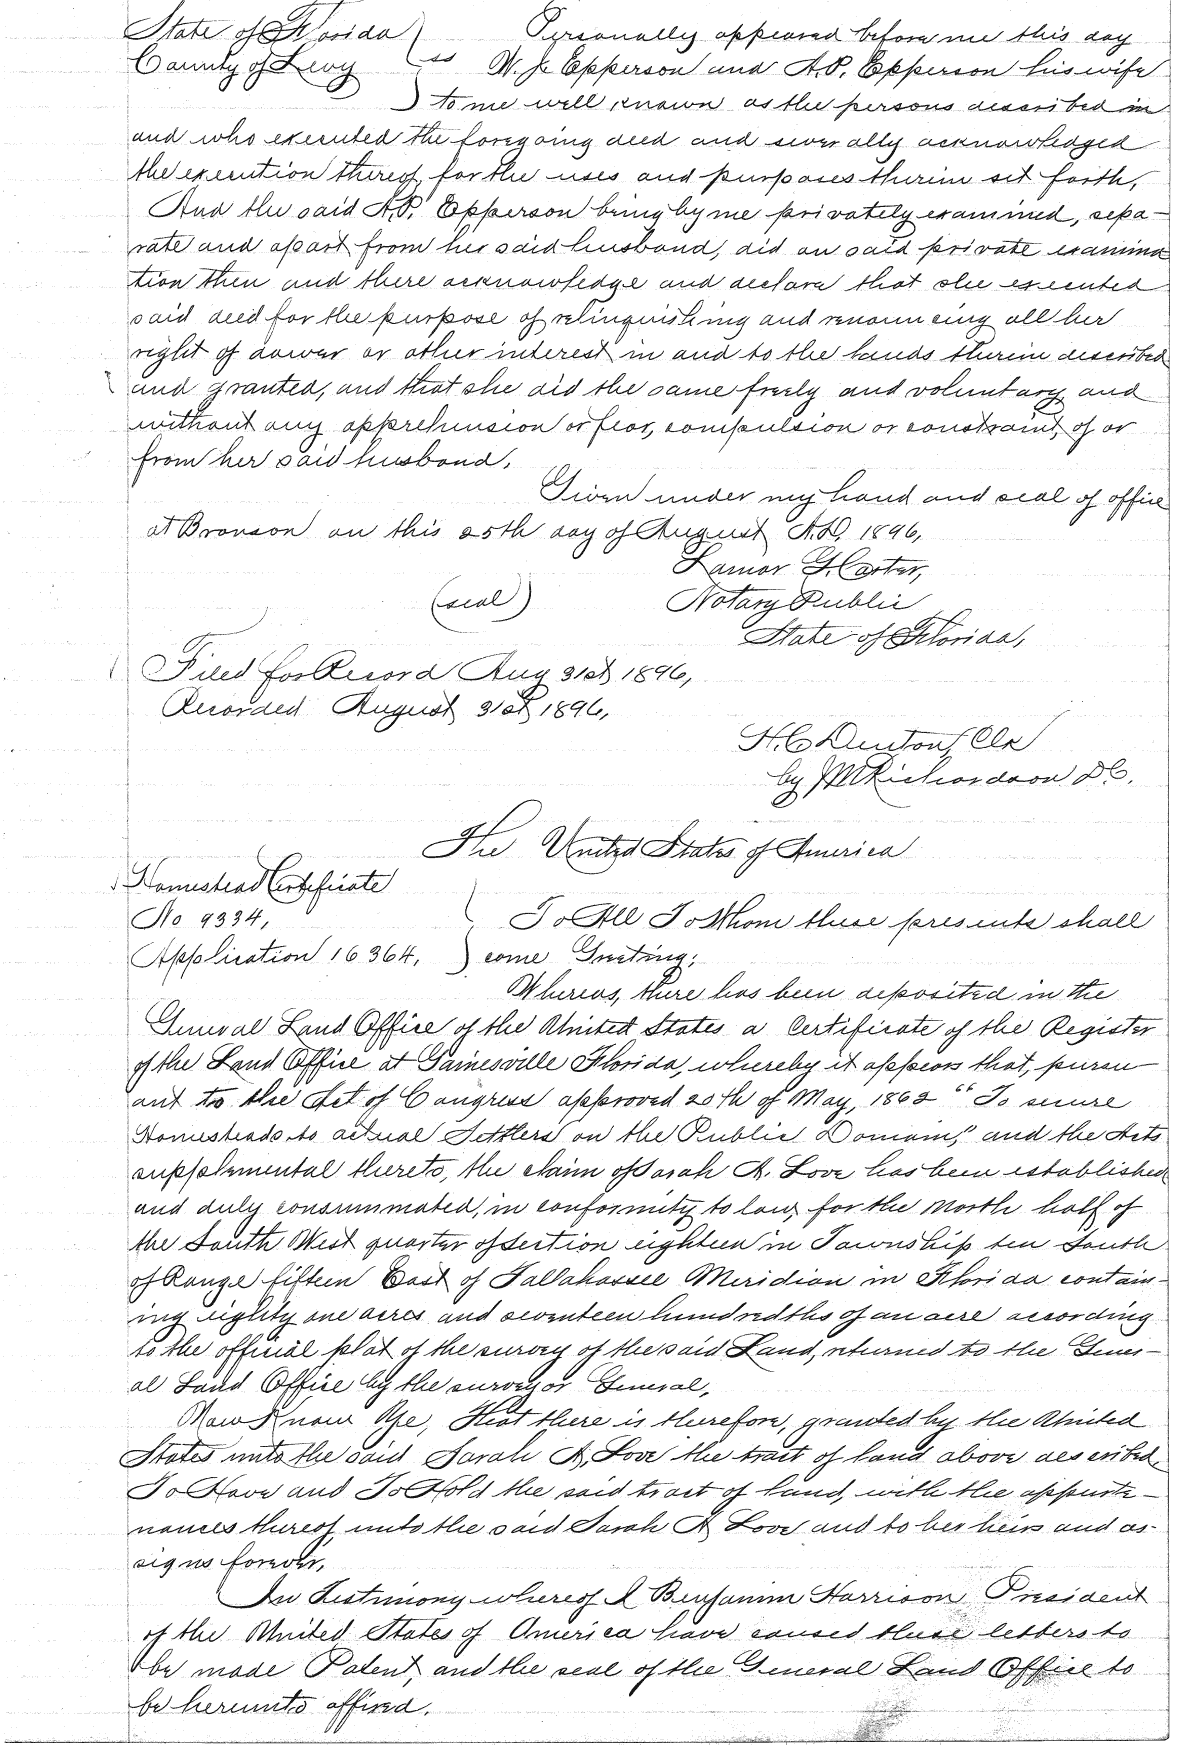 State of Florida ) Personally appeared before me this day
County of Levy ( ss W. J. Epperson and A.P. Epperson his wife
) to me well known as the persons described in
and who executed the foregoing deed and severally acknowledged
the execution thereof for the uses and purposes therein set forth,
And the said A.P. Epperson being by me privately examined, sepa-
rate and apart from her said husband, did on said private examina
tion then and there acknowledge and declare that she executed
said deed for the purpose of relinquishing and renouncing all her
right of dower or other interest in and to the lands therein described
and granted, and that she did the same freely and voluntary and
without any apprehension or fear, compulsion or constraint, of or
from her said husband.
Given under my hand and seal of office
at Bronson on this 25th day of August A.D. 1896,
Carter,
(seal) Notary Public
State of Florida,
Filed for Record Aug 31st 1896,
Recorded August 31st 1896,
H.C. Denton, Clk
by J M Richardson D.C.
The United States of America
Homestead Certificate
No 9334, ( To All To Whom these presents shall
Application 16364, ) come Greeting:
Whereas, there has been deposited in the
General Land Office of the United States a Certificate of the Register
of the Land Office at Gainesville Florida, whereby it appears that, pursu-
ant to the Act of Congress approved 20th of May, 1862 "To secure
Homesteads to actual Settlers on the Public Domain," and the Acts
supplemental thereto, the claim of Sarah A. Love has been established
and duly consummated, in conformity to law, for the North half of
the South West quarter of Section eighteen in Township ten South
of Range fifteen East of Tallahassee Meridian in Florida contain-
ing eighty one acres and seventeen hundredths of an acre according
to the official plat of the survey of the said Land, returned to the Gener-
al Land Office by the surveyor General,
Now Know Ye, That there is therefore, granted by the United
States unto the said Sarah A. Love the tract of land above described,
To Have and To Hold the said tract of land, with the appurte-
nances thereof, unto the said Sarah A Love and to her heirs and as-
signs forever,
In Testimony whereof I Benjamin Harrison President
of the United States of America have caused these letters to
be made Patent, and the seal of the General Land Office to
be hereunto affixed.